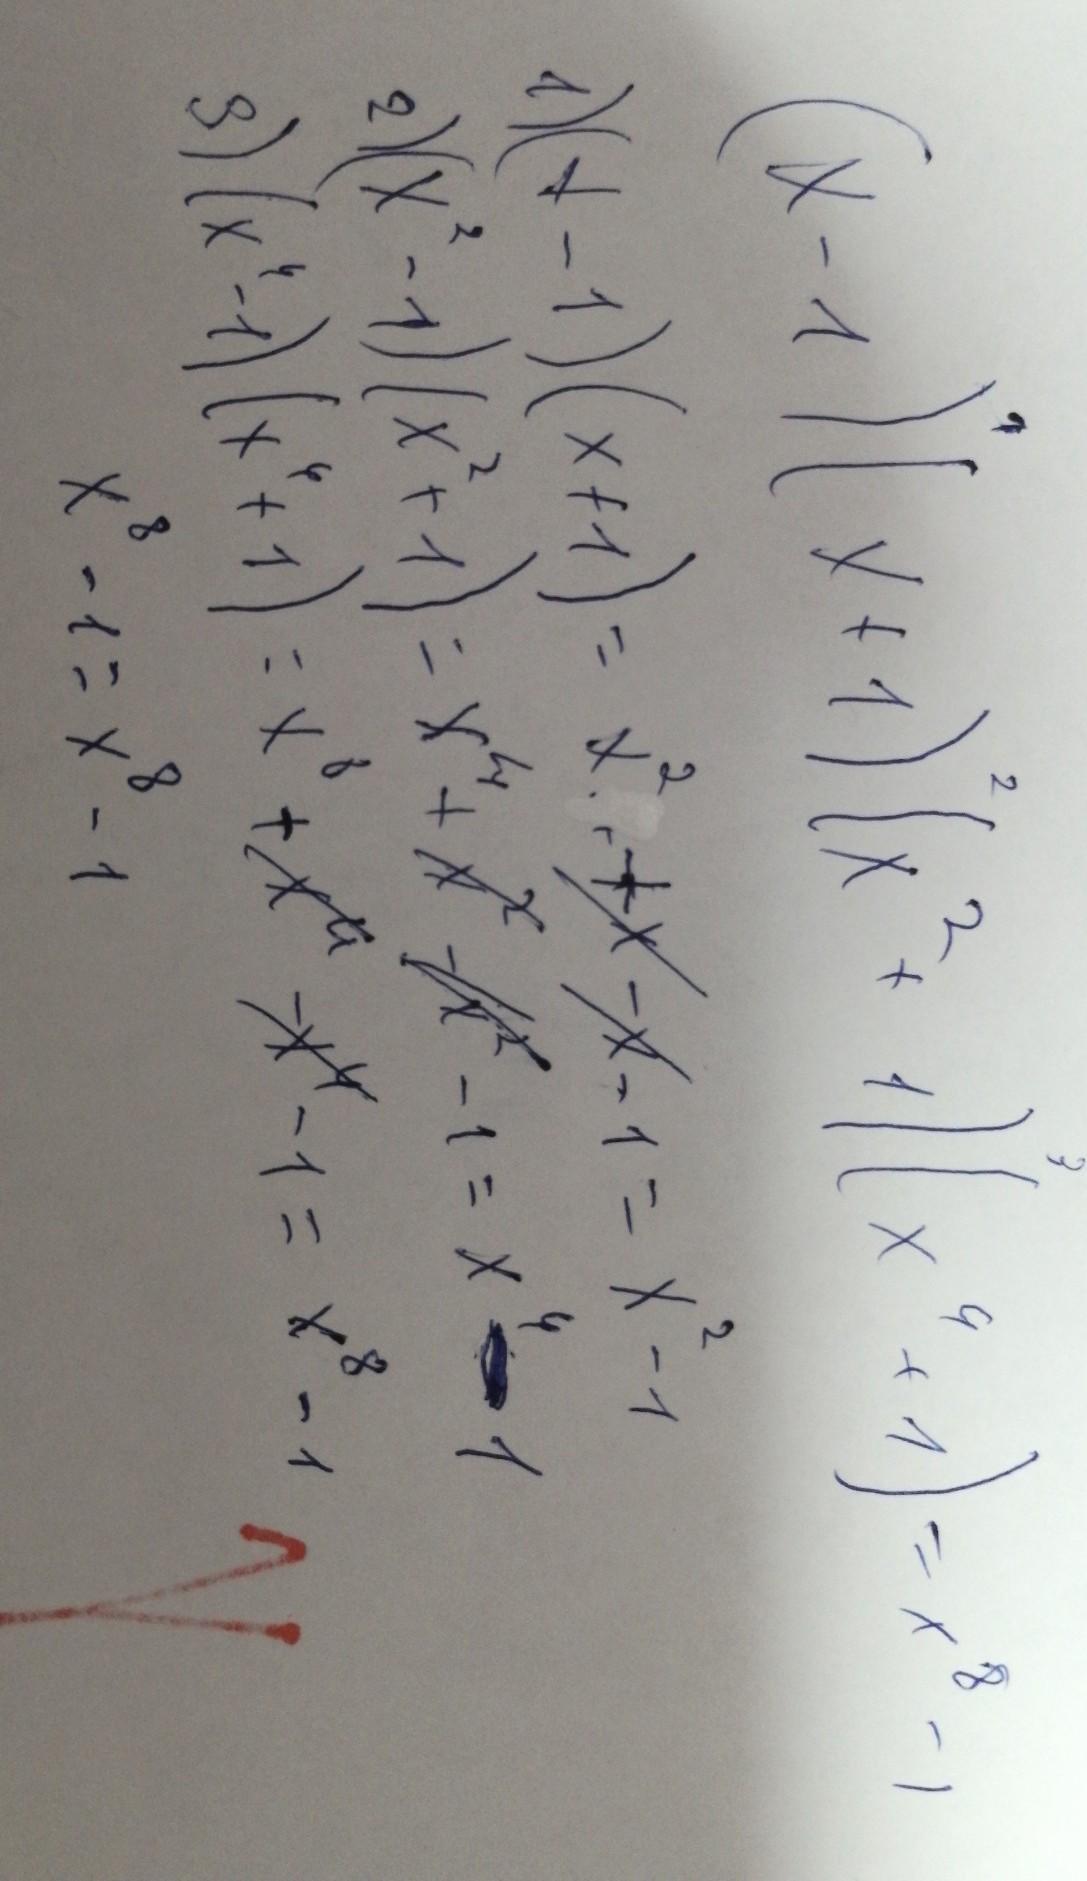 (x-1)¹(x+1)²(x²+1)³(x⁴+1)=x⁸-1
1)(x-1)(x+1)=x²+x-x-1=x²-1
2)(x²-1)(x²+1)=x⁴+x²-x²-1=x⁴-1
3)(x⁴-1)(x⁴+1)=x⁸+x⁴-x⁴-1=x⁸-1
x⁸-1=x⁸-1